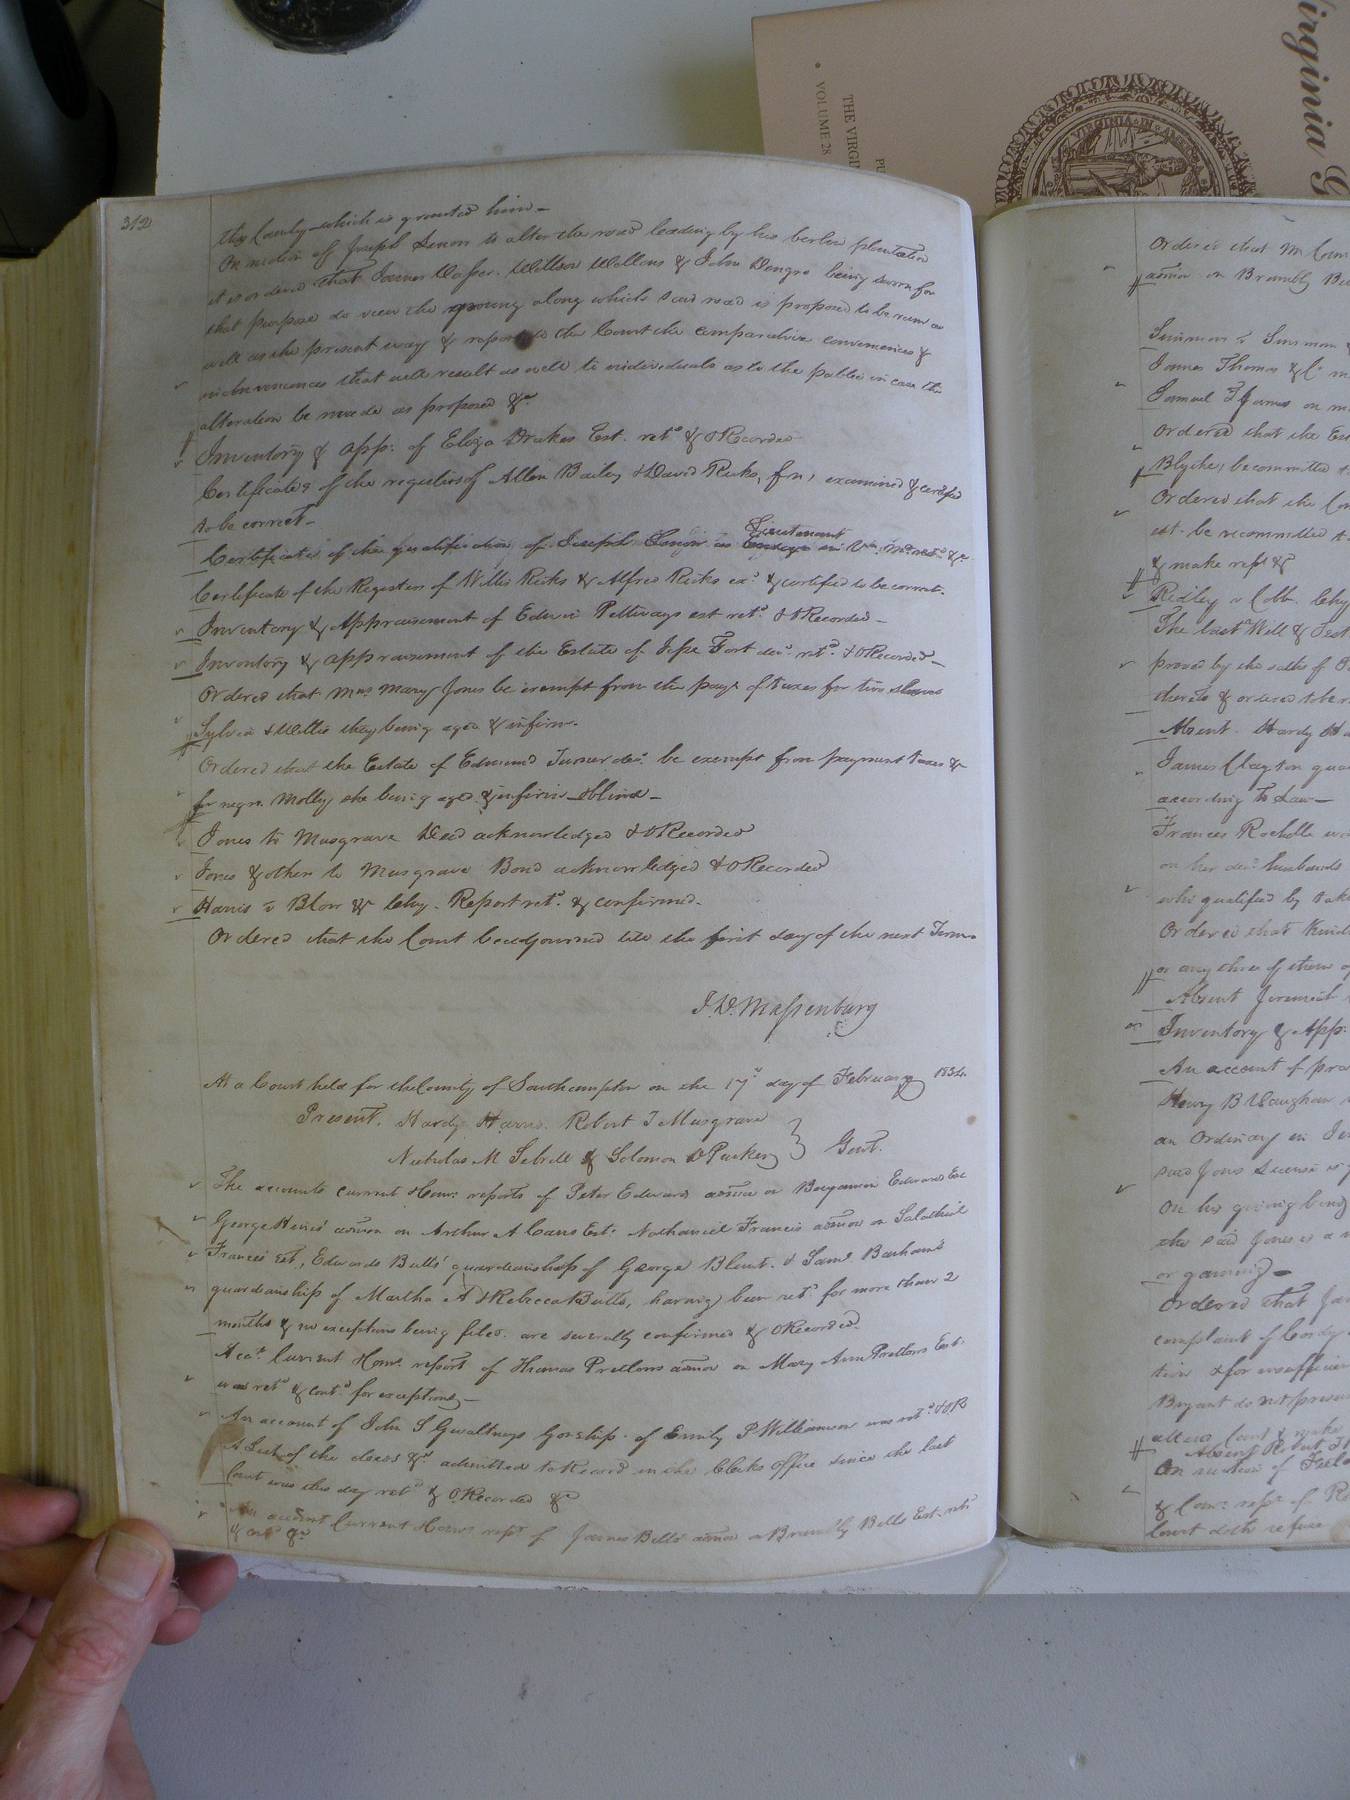 312
this County which is granted him –
On motion of Joseph Lenow to alter the road leading by his berlin plantation
it is ordered that James Vasser, Willson Wellons & John being sworn for
that purpose do view the along which said road is proposed to be run as
well as the present way & report to the Court the comparative conveniences &
inconveniences that will result as well to individuals as to the public in case the
alteration be made as proposed &c
Inventory & app: of Eliza Drakes Est. retd & ORecorded
Certificates of the registers of Allen Bailey & David Ricks, fn, examined & certified
to be correct –
Lieutenant
Certificate of the qualification of Joseph Lenow as in Va. Ma. retd &c
Certificate of the Registers of Willis Ricks & Alfred Ricks exd & certified to be correct.
Inventory & Appraisement of Edwin Pettways est retd & ORecorded –
Inventory & appraisement of the Estate of Jesse Fort decd retd & ORecorded –
Ordered that Mrs Mary Jones be exempt from the payt of taxes for two slaves
Sylvia & Willis they being aged & infirm.
Ordered that the Estate of Edmund Turner decd be exempt from payment taxes &c
for negro Molly she being aged & infirm & blind –
Jones to Musgrave Deed acknowledged & ORecorded
Jones & other to Musgrave Bond acknowledged & ORecorded
Harris v Blow &c Chy. Report retd & confirmed.
Ordered that the Court be adjourned till the first day of the next Term
J. D. Massenburg
At a Court held for the County of Southampton on the 17th day of February 1834
Present. Hardy Harris Robert T Musgrave
Nicholas M Sebrell & Solomon D Parker } Gent.
The accounts current & Comr reports of Peter Edwards admor on Benjamin Edwards Est
George admor on Arthur A Est. Nathaniel Francis admor on Salathiel
Francis' Est, Edwards Butts' guardianship of George Blunt & Saml Barhams
guardianship of Martha A & Rebecca Butts, having been retd for more than 2
months & no exceptions being filed are severally confirmed & ORecorded.
Acct Current & Comr report of Thomas Pretlows admor on Mary Ann Pretlows Est.
was retd & contd for exceptions –
An account of John S Gwaltneys Gdnship of Emily P Williamson was retd & OR
A List of the deeds &c admitted to Record in the Clerks office since the last
Court was this day retd & ORecorded &c
An account Current & Comrs rept of James Bells admor on Brumbly Bells Est. retd
& contd &c
Ordered that
admor on Brumbly
Simmons v Simmons
James Thomas & Co
Samuel T James on
Ordered that the
be committed
Ordered that the
est. be recommitted
& make rept &c
Ridley v Cobb Chy
The last Will & Test
proved by the oaths of
thereto & ordered to be
Absent Hardy
James Clayton
according to Law –
Frances Rochelle
on her decd husbands
who qualified by
Ordered that
or any three of them
Absent Jeremiah
Inventory & App:
An account of
Henry B Vaughan
an Ordinary in
said Jones License
On his giving bond
the said Jones is a
or gaming –
Ordered that
complaint of
tion & for
Bryant do not
Absent
On motion of
& Comr rept of
Court doth refuse
Virginia G
THE VIRGI
VOLUME 28
VIRGINIA